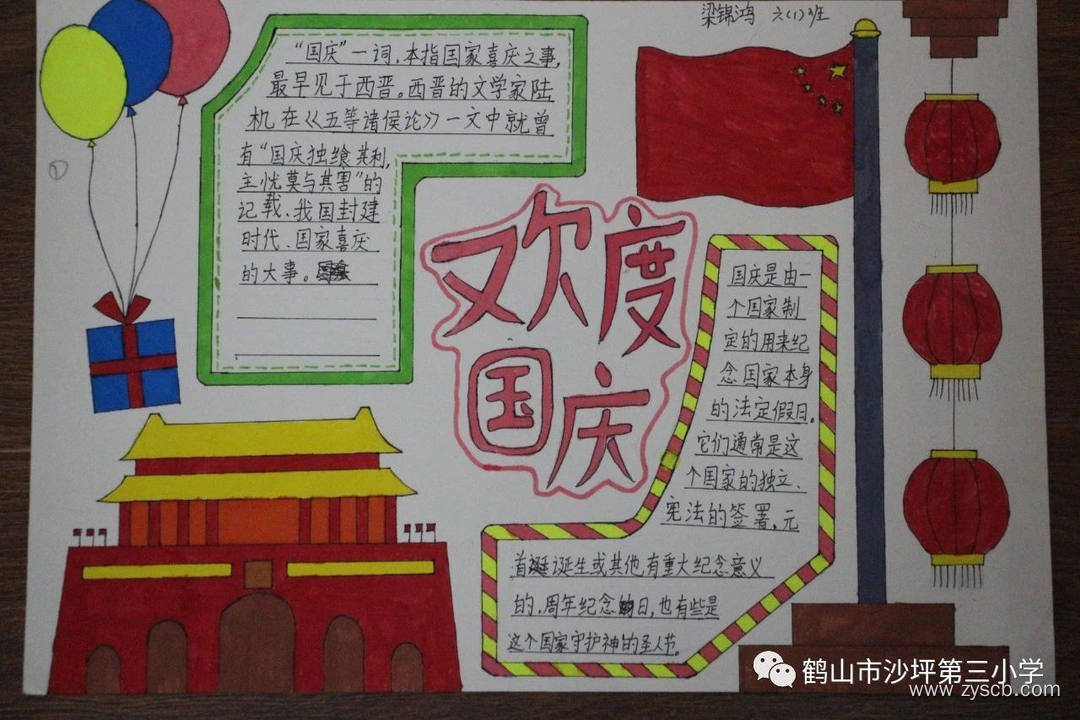 梁锦鸿 六(1)班
①
“国庆”一词,本指国家喜庆之事,
最早见于西晋。西晋的文学家陆
机在《五等诸侯论》一文中就曾
有“国庆独飨其利,
主忧莫与其害”的
记载、我国封建
时代、国家喜庆
的大事。
欢度
国庆
国庆是由一
个国家制
定的用来纪
念国家本身
的法定假日。
它们通常是这
个国家的独立、
宪法的签署,元
首诞生或其他有重大纪念意义
的,周年纪念日,也有些是
这个国家守护神的圣人节。
鹤山市沙坪第三小学
www.zyscb.com